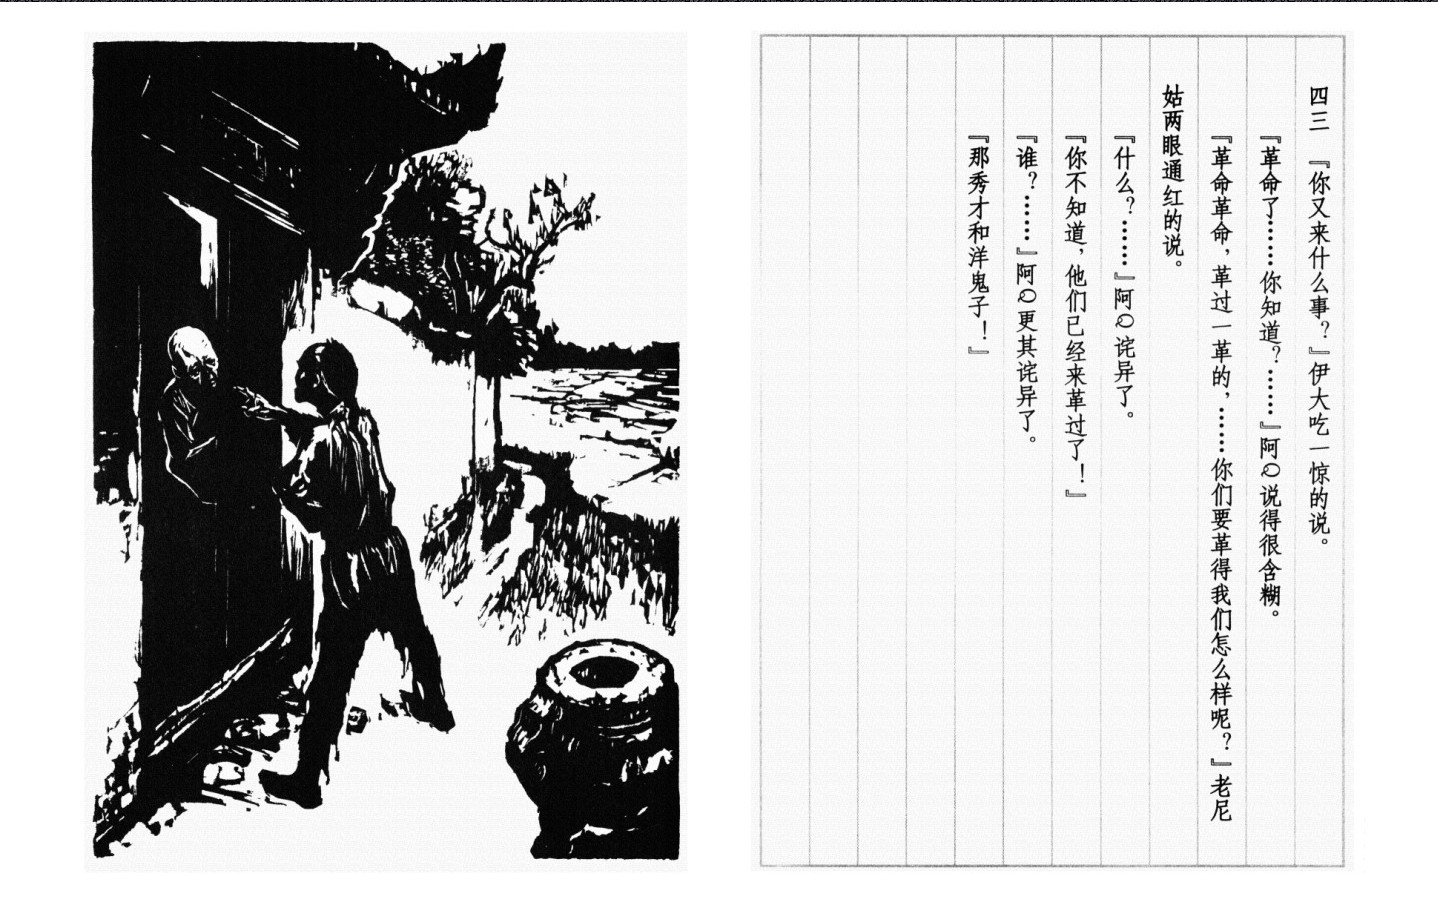 四三 『你又来什么事？』伊大吃一惊的说。
『革命了……你知道？……』阿Q说得很含糊。
『革命革命，革过一革的，……你们要革得我们怎么样呢？』老尼
姑两眼通红的说。
『什么？……』阿Q诧异了。
『你不知道，他们已经来革过了！』
『谁？……』阿Q更其诧异了。
『那秀才和洋鬼子！』